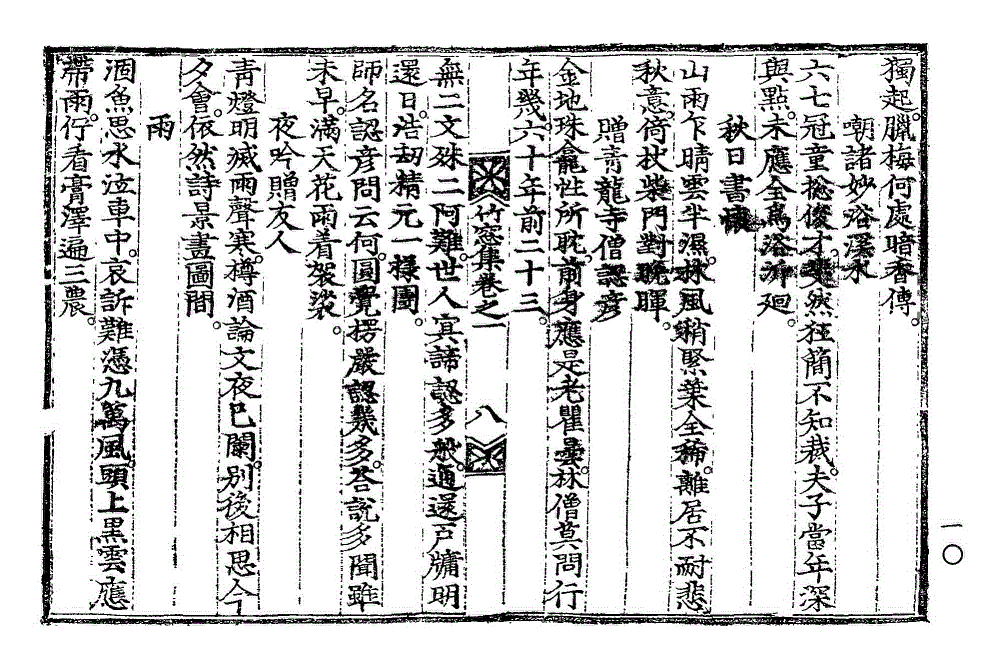 獨起。臘梅何處暗香傳。
嘲諸妙浴溪水
六七冠童摠俊才。斐然狂簡不知裁。夫子當年深
與點。未應全爲浴沂廻。
秋日書懷
山雨乍晴雲半濕。林風稍緊葉全稀。離居不耐悲
秋意。倚杖柴門對晩暉。
贈靑龍寺僧認彦
金地珠龕性所耽。前身應是老瞿曇。林僧莫問行
年幾。六十年前二十三。
竹窓集卷之一
八
無二文殊二阿難。世人寘諦認多般。通還戶牖明
還日。浩刼精元一樣團。
師名認彦問云何。圓覺楞嚴認幾多。答說多聞雖
未早。滿天花雨着袈裟。
夜吟贈友人
靑燈明滅雨聲寒。樽酒論文夜已闌。別後相思今
夕會。依然詩景畫圖間。
雨
涸魚思水泣車中。哀訴難憑九萬風。頭上黑雲應
帶雨。佇看膏澤遍三農。
一〇